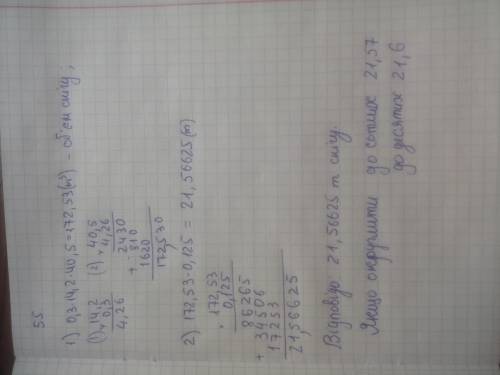 55
1) 0,3·14,2·40,5=172,53(м³) - об'єм снігу;
(1) × 14,2 (2) × 40,5
0,3 4,26
4,26 2430
+ 810
1620
172,530
2) 172,53·0,125 = 21,56625(т)
× 172,53
0,125
86265
+ 34506
17253
21,56625
Відповідь: 21,56625 т снігу.
Якщо округлити до сотих 21,57
до десятих 21,6